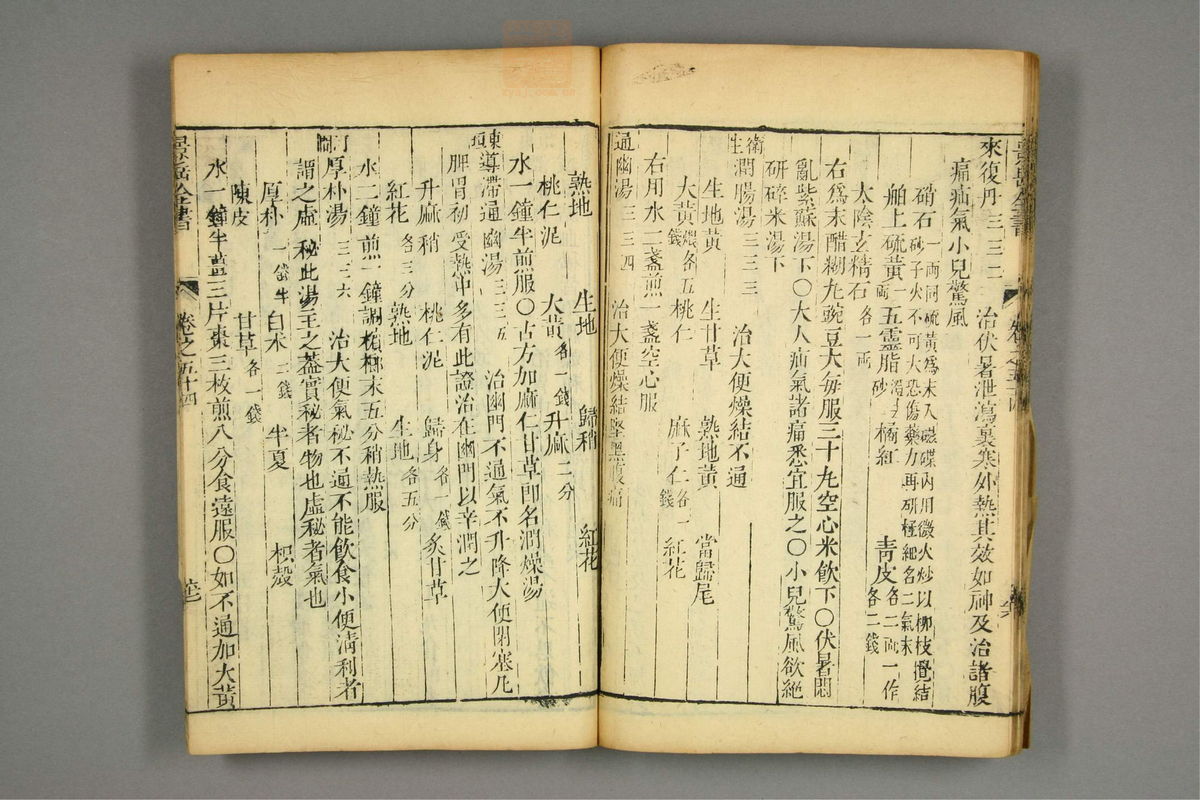 來復丹 三三二 治伏暑泄瀉裏寒外熱其效如神及治諸腹
痛疝氣小兒驚風
硝石 一兩同硫黃爲末入磁碟內用微火炒以柳枝攪結砂子火不可大恐傷藥力再研極細名二氣末
舶上硫黃 一兩 五靈脂 澄去砂 橘紅 青皮 各二兩一作各二錢
太陰玄精石 各一兩
右爲末醋糊丸豌豆大每服三十丸空心米飲下〇伏暑悶
亂紫蘇湯下〇大人疝氣諸痛悉宜服之〇小兒驚風欲絕
研碎米湯下
衛生潤腸湯 三三三 治大便燥結不通
生地黃 生甘草 熟地黃 當歸尾
大黃 煨各五錢 桃仁 麻子仁 各一錢 紅花
右用水二盞煎一盞空心服
通幽湯 三三四 治大便燥結堅黑腹痛
熟地 生地 歸稍 紅花
桃仁泥 大黃 各一錢 升麻 二分
水一鐘半煎服〇古方加麻仁甘草即名潤燥湯
東垣導滯通幽湯 三三五 治幽門不通氣不升降大便閉塞凡
脾胃初受熱中多有此證治在幽門以辛潤之
升麻稍 桃仁泥 歸身 各一錢 炙甘草
紅花 各三分 熟地 生地 各五分
水二鐘煎一鐘調檳榔末五分稍熱服
河間厚朴湯 三三六 治大便氣秘不通不能飲食小便清利者
謂之虛秘此湯主之蓋實秘者物也虛秘者氣也
厚朴 一錢半 白朮 二錢 半夏 枳殼
陳皮 甘草 各一錢
水一鐘半薑三片棗三枚煎八分食遠服〇如不通加大黃
景岳全書 卷之五十四